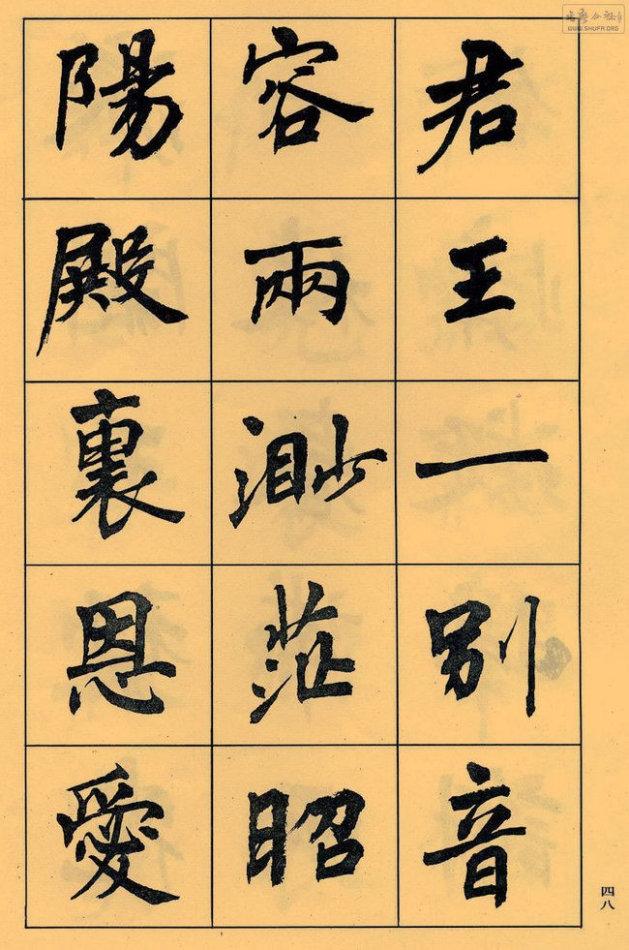 君王一別音
容兩渺茫昭
陽殿裏恩愛
四八
WWW.SHUFA.ORG